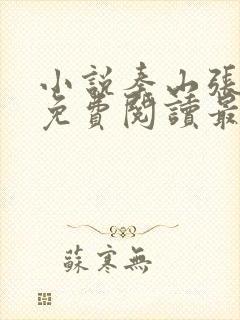 小說秦山張
免費閱讀最
蘇寒無